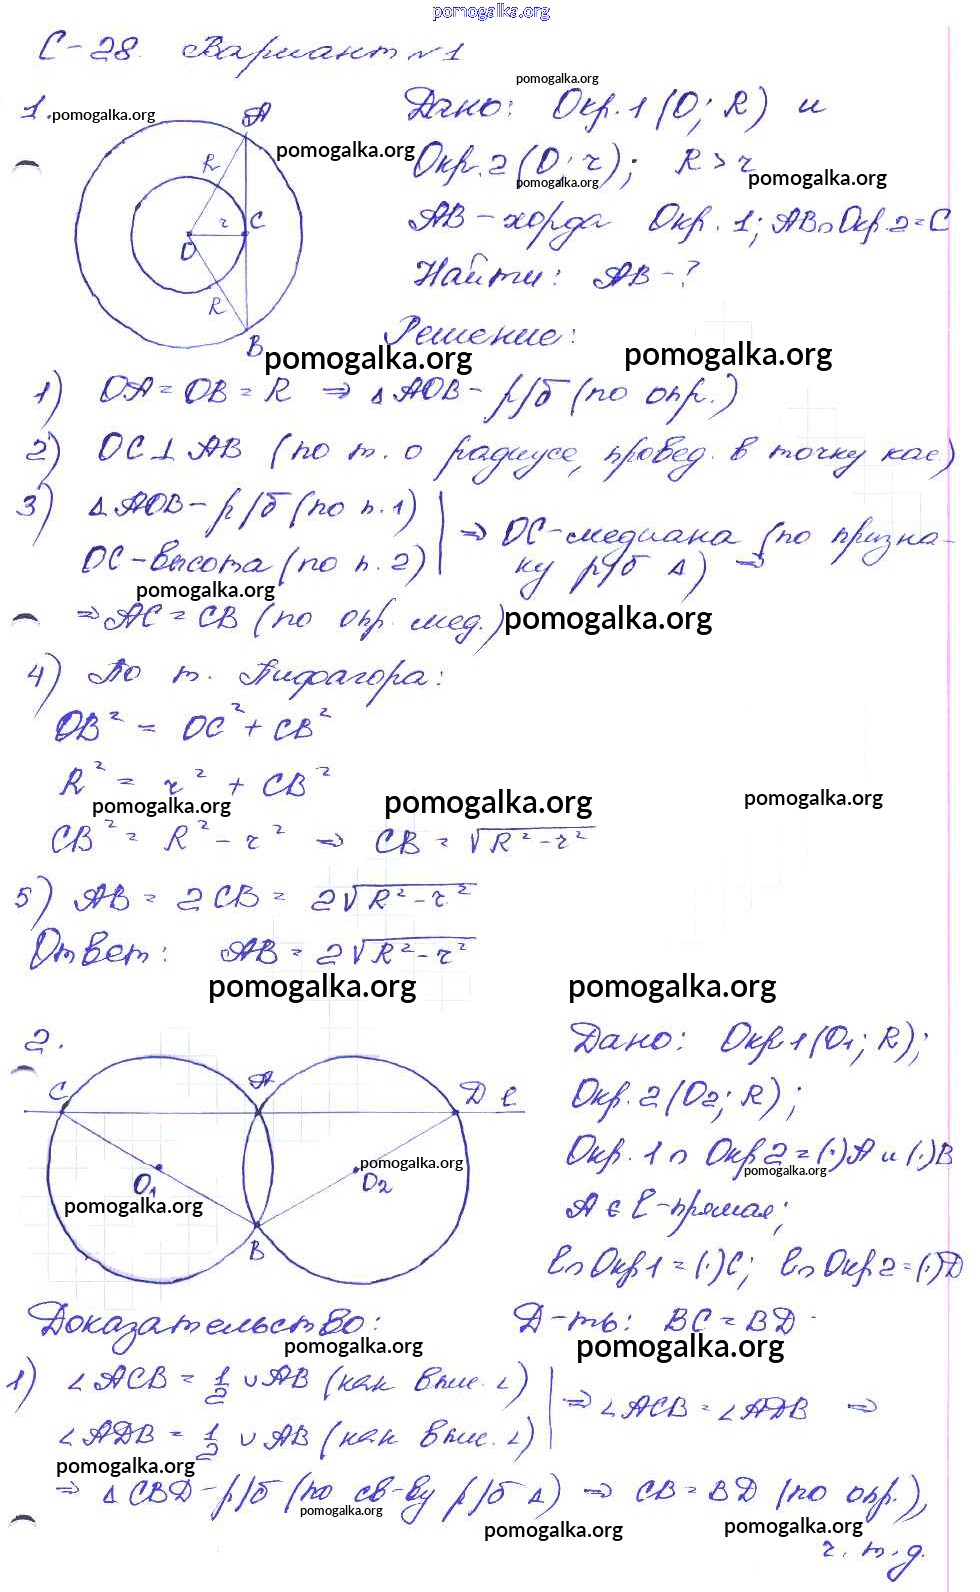 pomogalka.org
С-28. Вариант №1
pomogalka.org
1. pomogalka.org
A
Дано: Окр.1 (O; R) и
R
pomogalka.org
Окр.2 (O; r); R > r
pomogalka.org
pomogalka.org
r
C
O
AB - хорда Окр. 1; AB∩Окр.2 = C
R
Найти: AB - ?
B
Решение:
pomogalka.org
pomogalka.org
1) OA = OB = R ⇒ △AOB - р/б (по опр.)
2) OC ⊥ AB (по т. о радиусе, провед. в точку кас)
3) △AOB - р/б (по п.1)
OC - высота (по п. 2)
⇒ OC - медиана (по призна-
ку р/б △) ⇒
pomogalka.org
⇒ AC = CB (по опр. мед.)
pomogalka.org
4) По т. Пифагора:
OB² = OC² + CB²
R² = r² + CB²
pomogalka.org
pomogalka.org
pomogalka.org
CB² = R² - r² ⇒ CB = √R² - r²
5) AB = 2CB = 2√R² - r²
Ответ: AB = 2√R² - r²
pomogalka.org
pomogalka.org
2.
C
A
D
l
O₁
O₂
B
pomogalka.org
pomogalka.org
Дано: Окр1(O₁; R);
Окр.2(O₂; R);
Окр.1 ∩ Окр2 = (·)A и (·)B
pomogalka.org
A ∈ l - прямая;
l∩Окр1 = (·)C; l∩Окр2 = (·)D
Доказательство:
Д-ть: BC = BD
pomogalka.org
pomogalka.org
1) ∠ACB = 1/2 ∪AB (как впис. ∠)
∠ADB = 1/2 ∪AB (как впис. ∠)
⇒ ∠ACB = ∠ADB ⇒
pomogalka.org
⇒ △CBD - р/б (по св-ву р/б △) ⇒ CB = BD (по опр.),
pomogalka.org
pomogalka.org
pomogalka.org
ч. т. д.